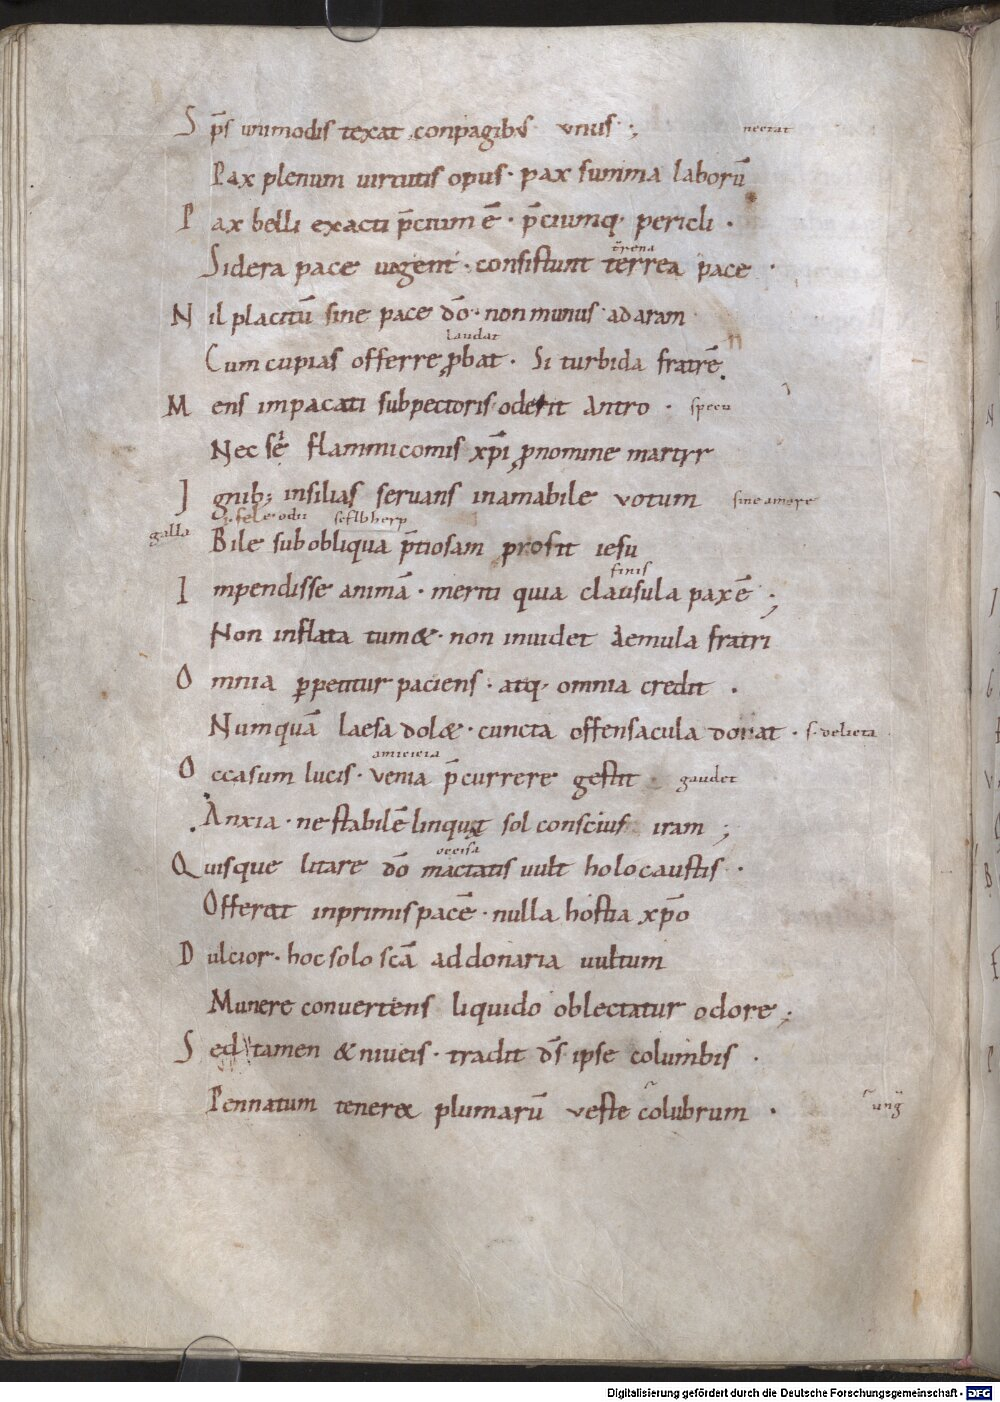 S p̄s unimodis texat conpagibus unus ; nectat
Pax plenum uirtutis opus · pax summa laborū
P ax belli exacti p̄cium ē · p̄ciumq· pericli ·
t̄rena
Sidera pace uigent · consistunt terrea pace ·
N il placitū sine pace dō · non munus ad aram
laudat
Cum cupias offerre ꝓbat · Si turbida fratrē
M ens impacati subpectoris oderit Antro · specu
Nec sē flammicomis xp̄i ꝓ nomine martyr
I gnib; insilias seruans inamabile votum sine amore
galla .i. fele odii
Bile sub obliqua p̄tiosam profit iesu
finis
I mpendisse animā · meriti quia clausula pax ē ;
Non inflata tum& · non inuidet Aemula fratri
O mnia ꝑpetitur paciens · atq· omnia credit ·
Numquā laesa dol& · cuncta offensacula donat · s· delicta
amicicia
O ccasum lucis · venia p̄currere gestit gaudet
Anxia · ne stabilē linquat sol conscius iram ;
occisa
Q uisque litare dō mactatis uult holocaustis ·
Offerat inprimis pacē · nulla hostia xp̄o
D ulcior · hoc solo scā ad donaria uultum
Munere conuertens liquido oblectatur odore ;
S ed tamen & niueis · tradit d̄s ipse columbis ·
Pennatum tenerae plumarū veste colubrum ·
Digitalisierung gefördert durch die Deutsche Forschungsgemeinschaft · DFG